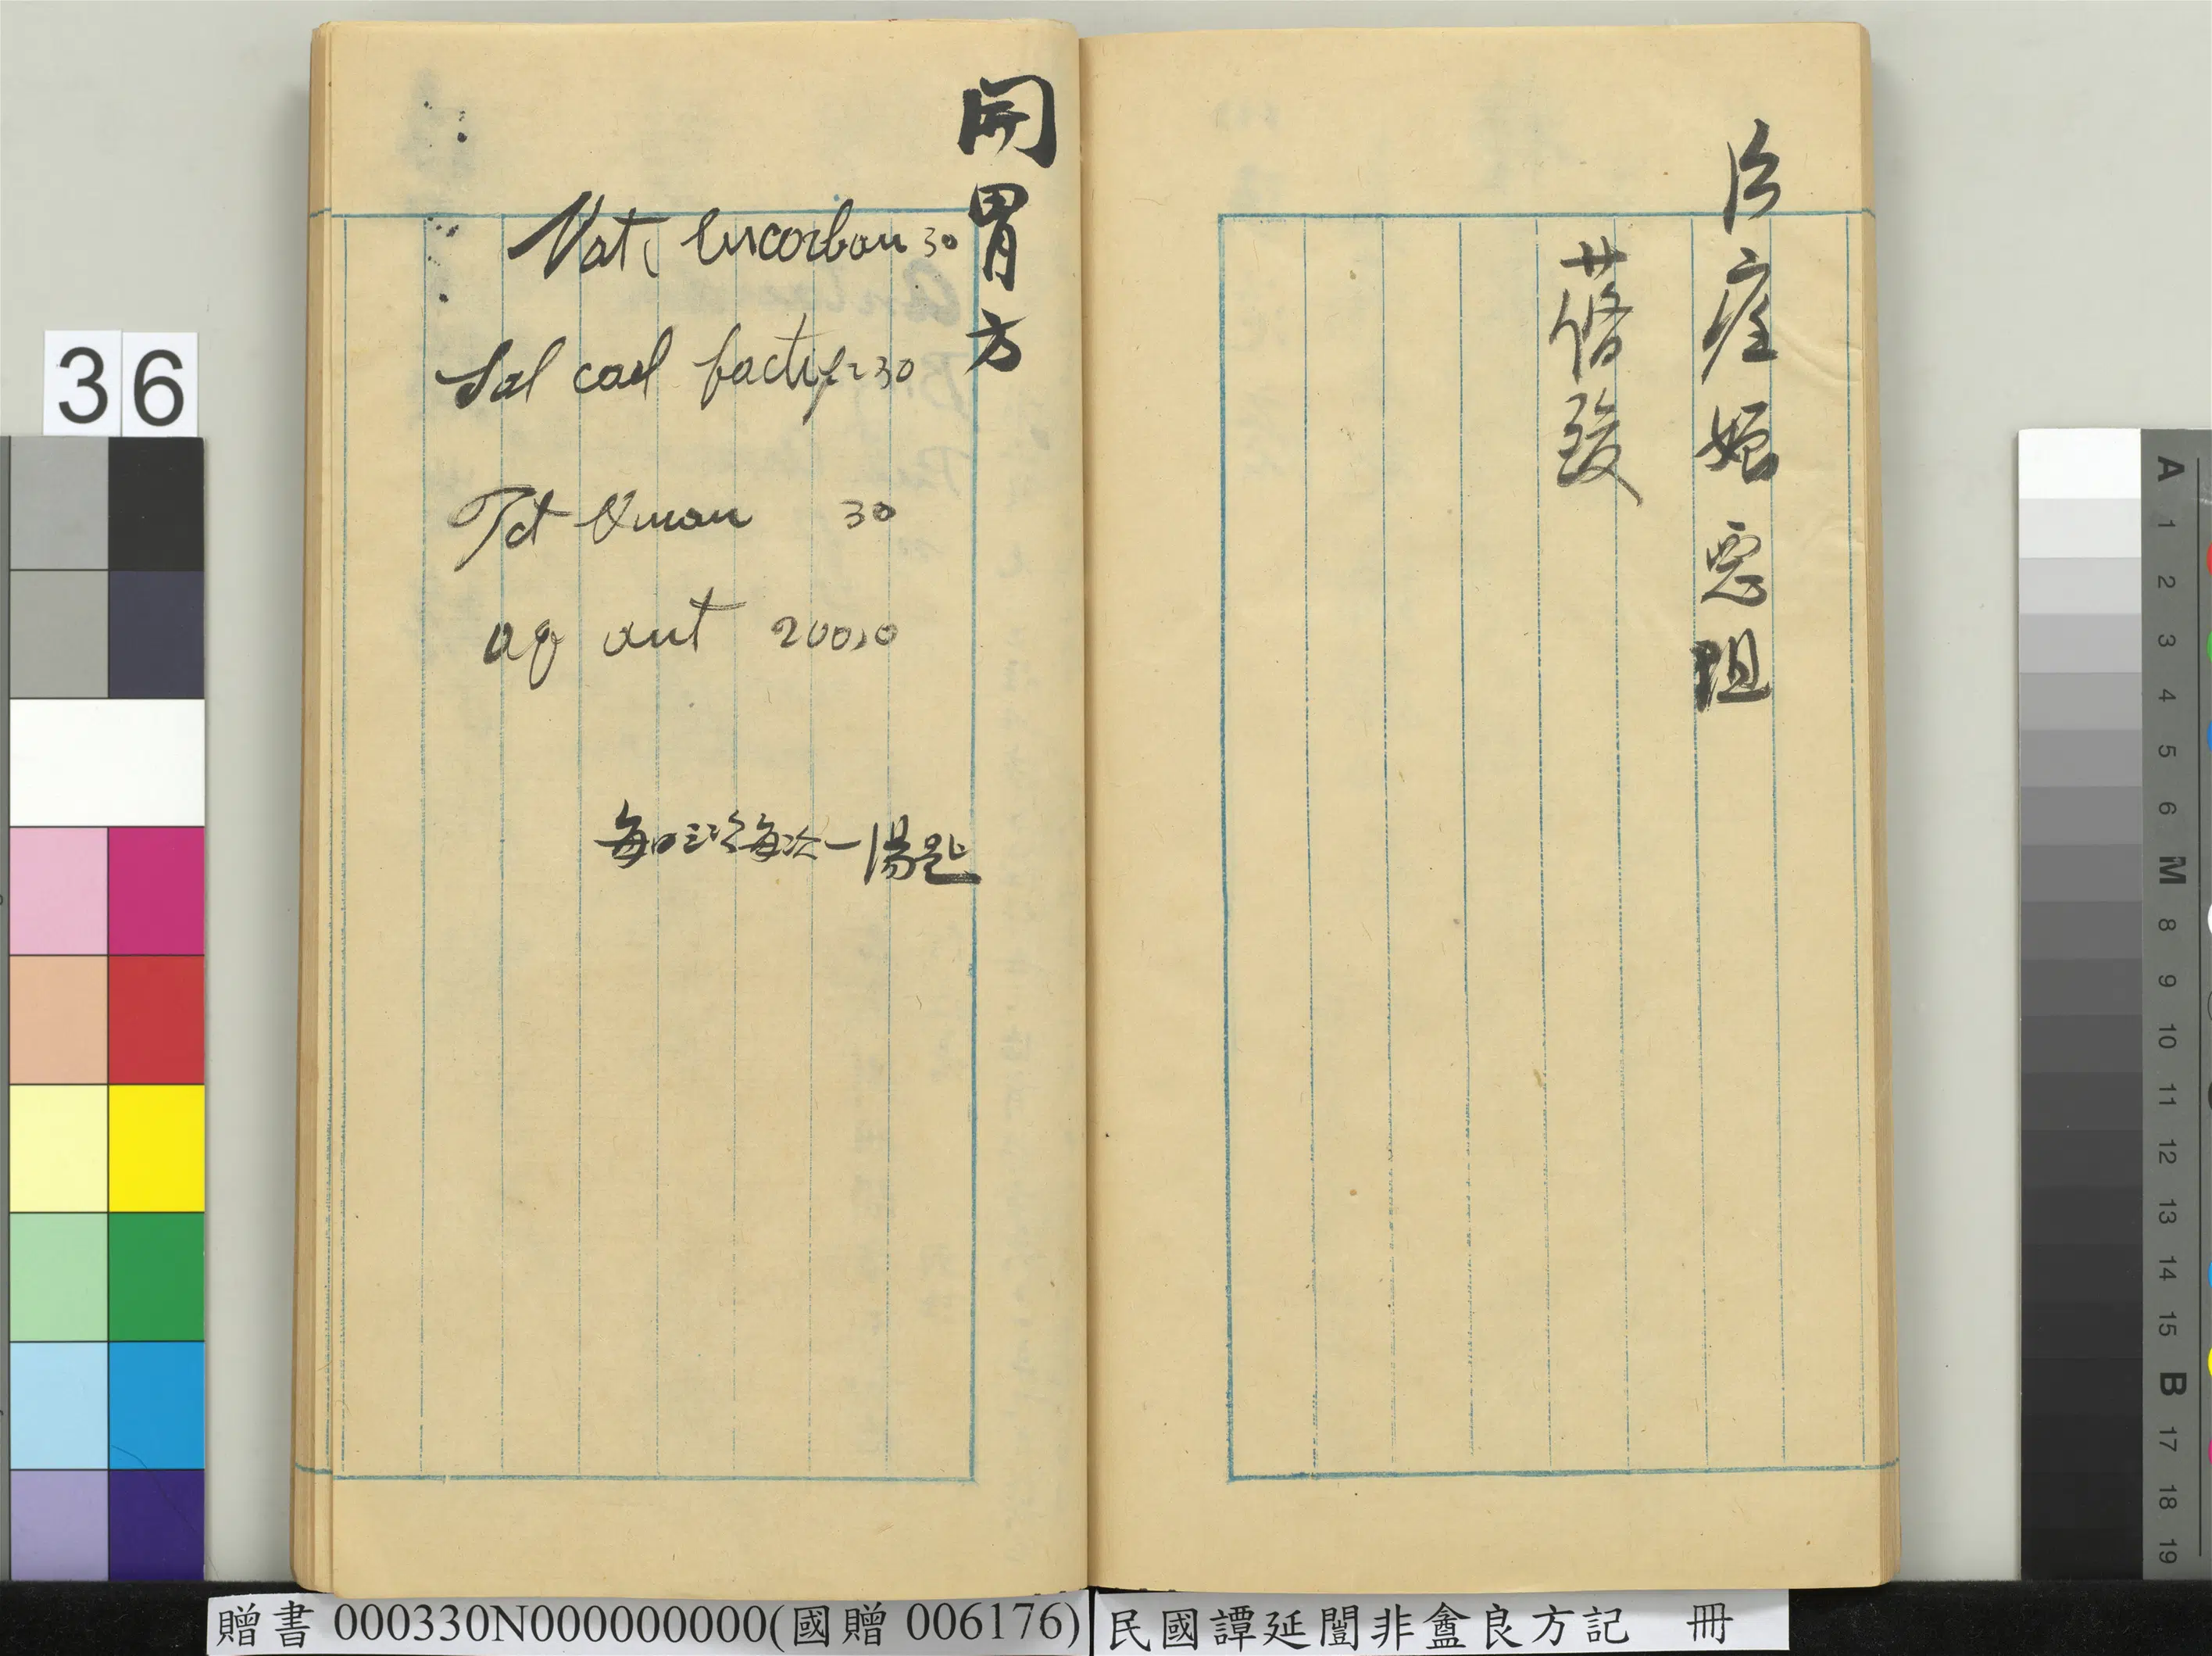 治產娠惡阻
開胃方
Nat, bicarbon 30
Sal carl factif 30
Tct Aman 30
aq ant 200,0
每日三次每次一湯匙
36
贈書 000330N000000000(國贈 006176)
民國譚延闓非盦良方記 冊
A 1 2 3 4 5 6 M 8 9 10 11 12 13 14 15 B 17 18 19